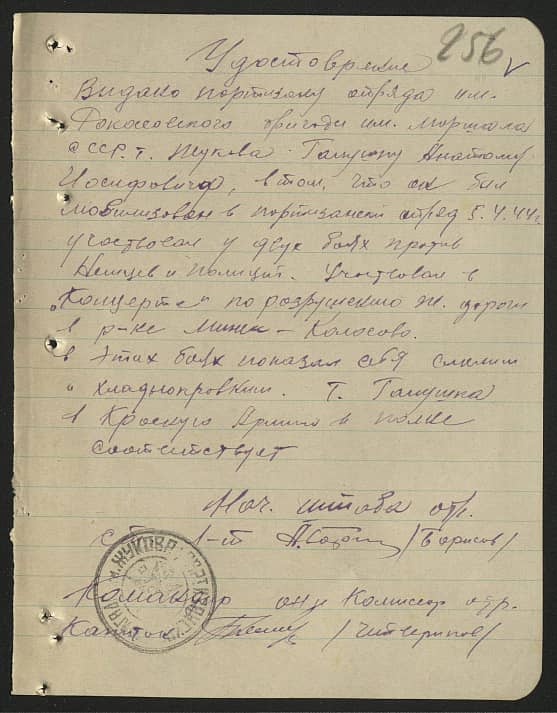 256
Удостоверение
Выдано партизану отряда им.
Рокоссовского бригады им. Маршала
СССР т. Жукова Галушку Анатолию
Иосифовичу, в том, что он был
мобилизован в партизанский отряд 5.4.44г.
участвовал у двух боях против
Немцев и полиции. Участвовал в
"Концерте" по разрушению ж. дороги
в р-не Минск - Колосово.
в этих боях показал себя смелым
и хладнокровным. т. Галушка
в Красную Армию в полне
соответствует
Нач. штаба отр.
с л-т /Борисов/
Командир Комиссар отр.
Капитан
ЖУКОВА